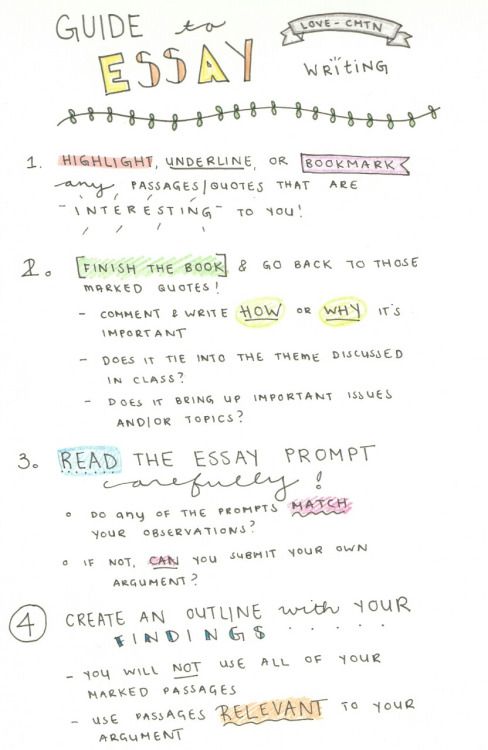 GUIDE to
LOVE-CMTN
ESSAY
WRITING
1. HIGHLIGHT, UNDERLINE, OR BOOKMARK
any PASSAGES/QUOTES THAT ARE
"INTERESTING" TO YOU!
2. [FINISH THE BOOK] & GO BACK TO THOSE
MARKED QUOTES!
- COMMENT & WRITE HOW OR WHY IT'S
IMPORTANT
- DOES IT TIE INTO THE THEME DISCUSSED
IN CLASS?
- DOES IT BRING UP IMPORTANT ISSUES
AND/OR TOPICS?
3. READ THE ESSAY PROMPT
carefully!
o DO ANY OF THE PROMPTS MATCH
YOUR OBSERVATIONS?
o IF NOT, CAN YOU SUBMIT YOUR OWN
ARGUMENT?
4 CREATE AN OUTLINE with YOUR
FINDINGS . . . . .
- YOU WILL NOT USE ALL OF YOUR
MARKED PASSAGES
- USE PASSAGES RELEVANT TO YOUR
ARGUMENT